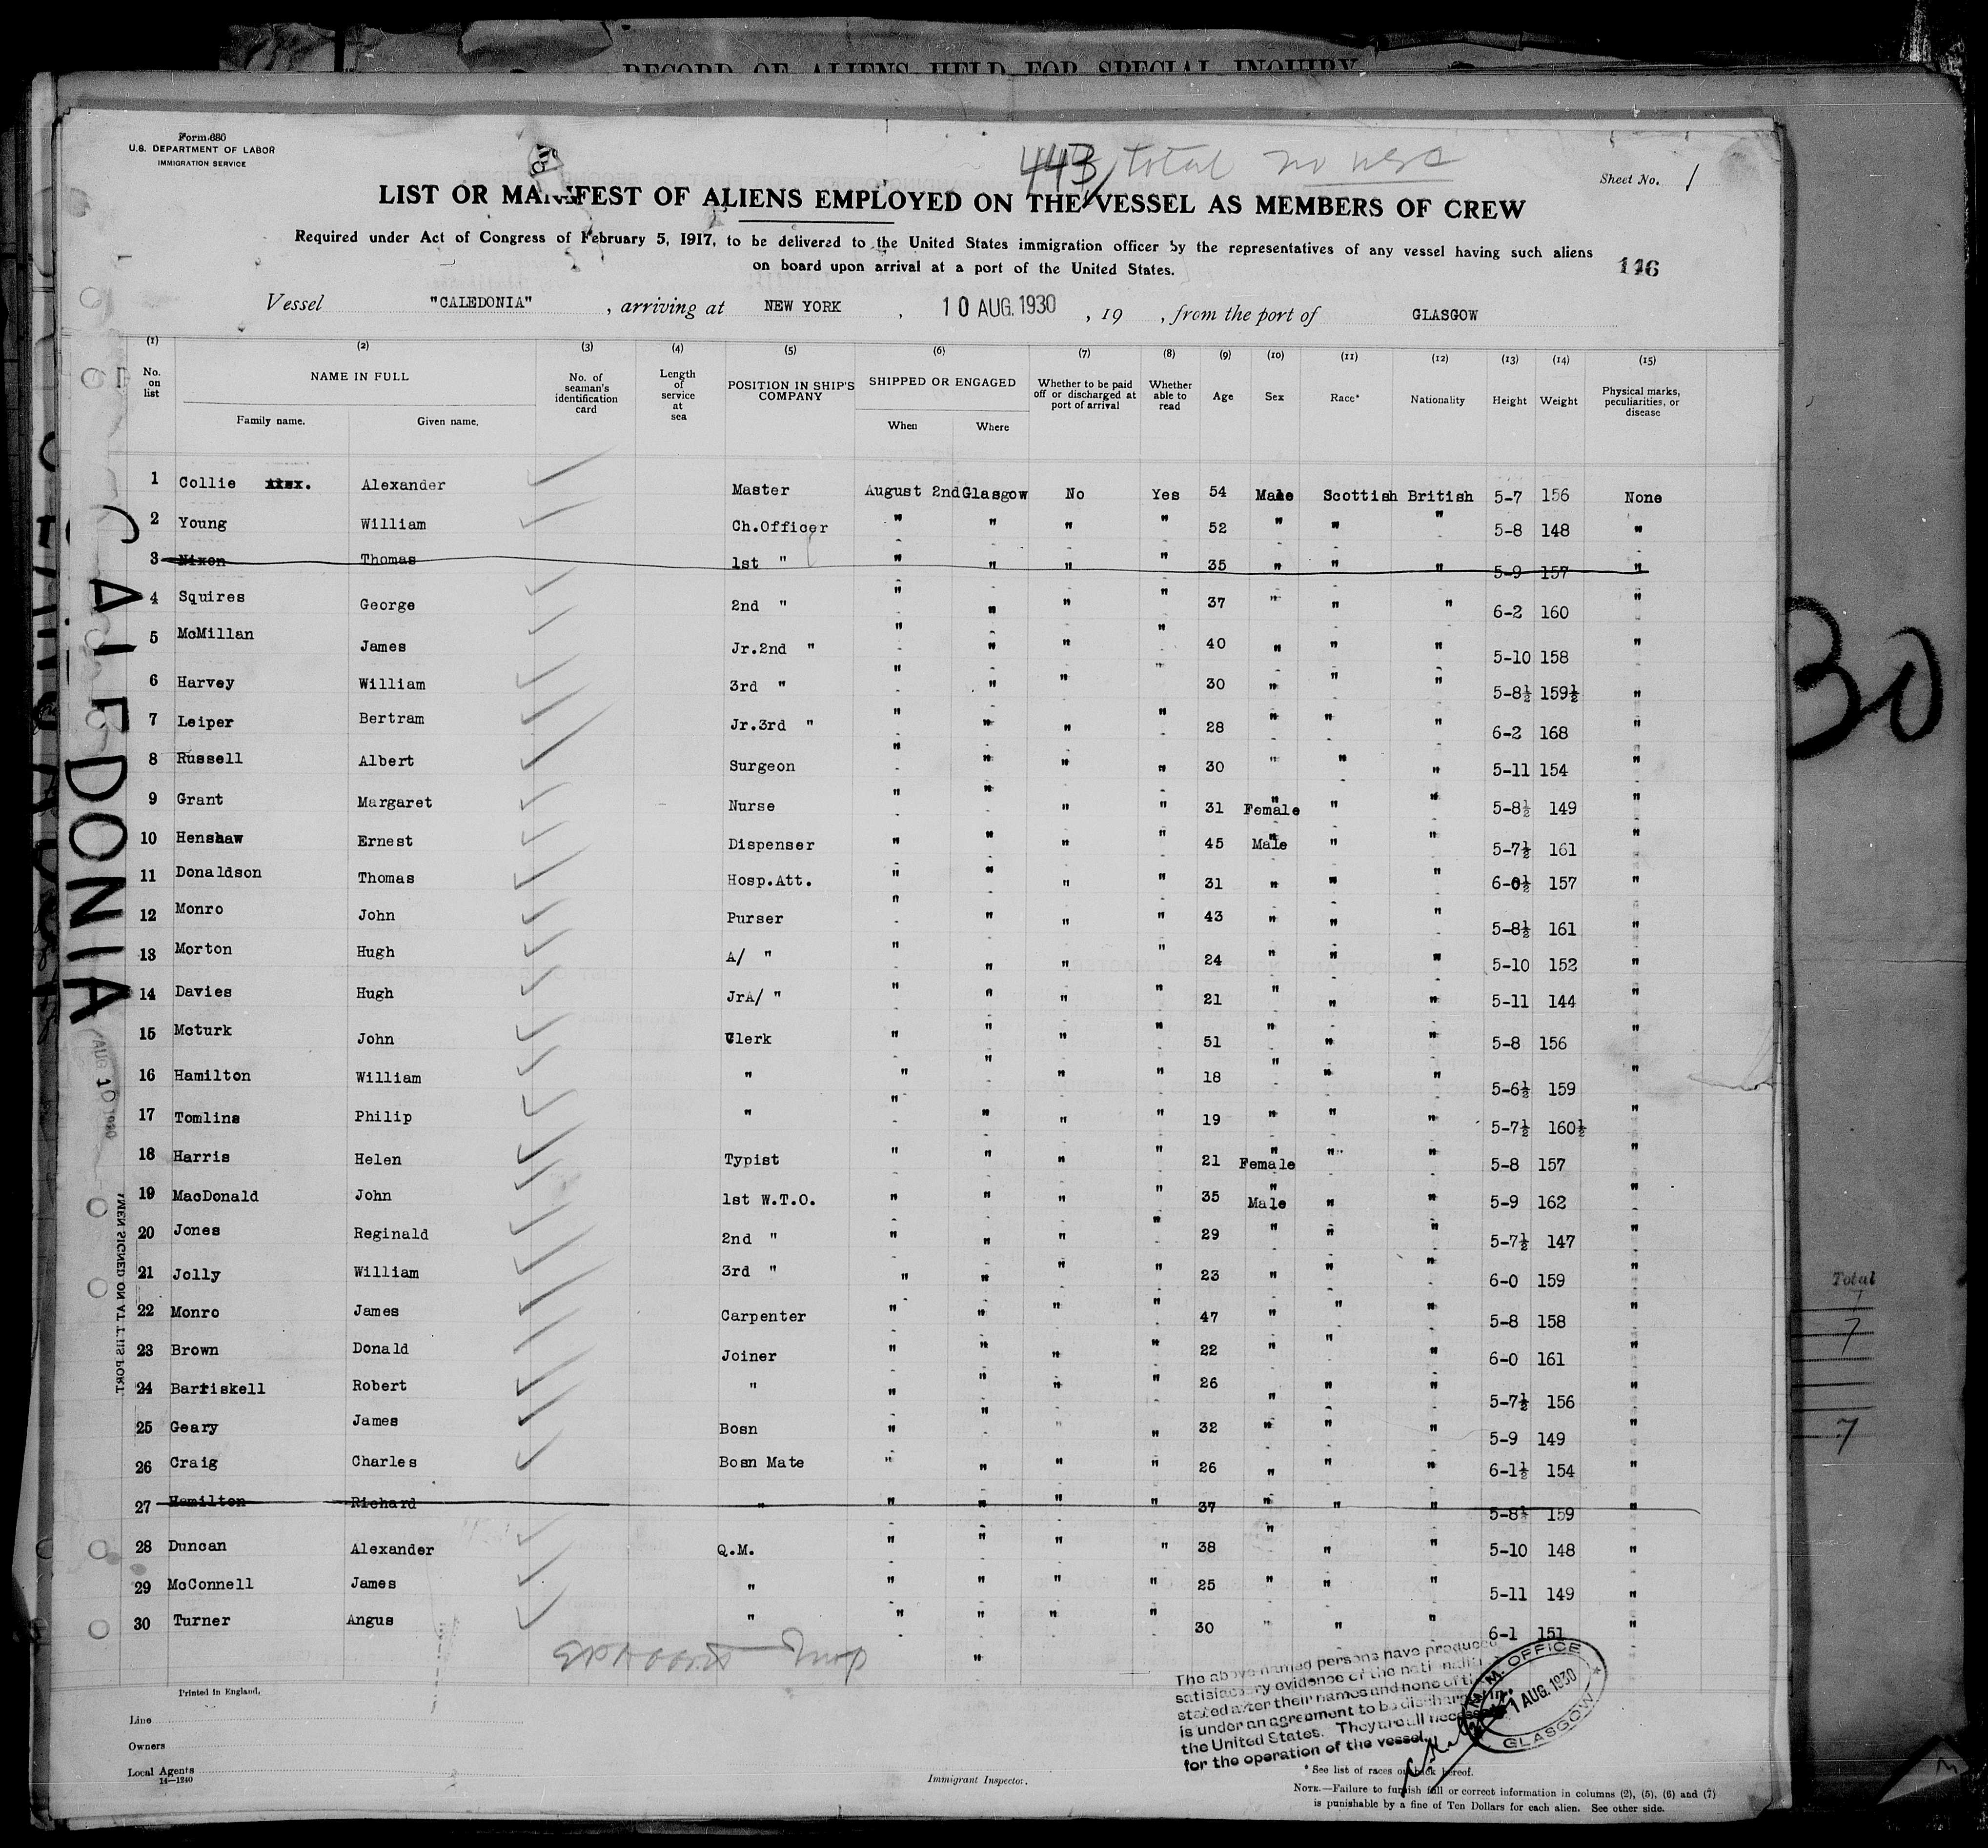 RECORD OF ALIENS HELD FOR SPECIAL INQUIRY
Form 680
U.S. DEPARTMENT OF LABOR
IMMIGRATION SERVICE
443 total no
Sheet No. 1
LIST OR MANIFEST OF ALIENS EMPLOYED ON THE VESSEL AS MEMBERS OF CREW
Required under Act of Congress of February 5, 1917, to be delivered to the United States immigration officer by the representatives of any vessel having such aliens
on board upon arrival at a port of the United States.
Vessel "CALEDONIA", arriving at NEW YORK, 10 AUG. 1930, 19 , from the port of GLASGOW
(1) (2) (3) (4) (5) (6) (7) (8) (9) (10) (11) (12) (13) (14) (15)
No. on list NAME IN FULL Family name. Given name. No. of seaman's identification card Length of service at sea POSITION IN SHIP'S COMPANY SHIPPED OR ENGAGED When Where Whether to be paid off or discharged at port of arrival Whether able to read Age Sex Race* Nationality Height Weight Physical marks, peculiarities, or disease
1 Collie Alex. Alexander Master August 2nd Glasgow No Yes 54 Male Scottish British 5-7 156 None
2 Young William Ch.Officer " " " " 52 " " " 5-8 148 "
3 Nixon Thomas 1st " " " " " 35 " " " 5-9 157 "
4 Squires George 2nd " " " " " 37 " " " 6-2 160 "
5 McMillan James Jr.2nd " " " " " 40 " " " 5-10 158 "
6 Harvey William 3rd " " " " " 30 " " " 5-8½ 159½ "
7 Leiper Bertram Jr.3rd " " " " " 28 " " " 6-2 168 "
8 Russell Albert Surgeon " " " " 30 " " " 5-11 154 "
9 Grant Margaret Nurse " " " " 31 Female " " 5-8½ 149 "
10 Henshaw Ernest Dispenser " " " " 45 Male " " 5-7½ 161 "
11 Donaldson Thomas Hosp.Att. " " " " 31 " " " 6-0½ 157 "
12 Monro John Purser " " " " 43 " " " 5-8½ 161 "
13 Morton Hugh A/ " " " " " 24 " " " 5-10 152 "
14 Davies Hugh JrA/ " " " " " 21 " " " 5-11 144 "
15 Mcturk John Clerk " " " " 51 " " " 5-8 156 "
16 Hamilton William " " " " " 18 " " " 5-6½ 159 "
17 Tomlins Philip " " " " " 19 " " " 5-7½ 160½ "
18 Harris Helen Typist " " " " 21 Female " " 5-8 157 "
19 MacDonald John 1st W.T.O. " " " " 35 Male " " 5-9 162 "
20 Jones Reginald 2nd " " " " " 29 " " " 5-7½ 147 "
21 Jolly William 3rd " " " " " 23 " " " 6-0 159 "
22 Monro James Carpenter " " " " 47 " " " 5-8 158 "
23 Brown Donald Joiner " " " " 22 " " " 6-0 161 "
24 Barriskell Robert " " " " " 26 " " " 5-7½ 156 "
25 Geary James Bosn " " " " 32 " " " 5-9 149 "
26 Craig Charles Bosn Mate " " " " 26 " " " 6-1½ 154 "
27 Hamilton Richard " " " " " 37 " " " 5-8½ 159 "
28 Duncan Alexander Q.M. " " " " 38 " " " 5-10 148 "
29 McConnell James " " " " " 25 " " " 5-11 149 "
30 Turner Angus " " " " " 30 " " " 6-1 151 "
The above named persons have produced
satisfactory evidence of the nationality
stated after their names and none of them
is under an agreement to be discharged in
the United States. They are all necessary
for the operation of the vessel.
M.M. OFFICE
1 AUG. 1930
GLASGOW
Printed in England.
Line
Owners
Local Agents
14—1240
Immigrant Inspector.
* See list of races on back hereof.
NOTE.—Failure to furnish full or correct information in columns (2), (5), (6) and (7)
is punishable by a fine of Ten Dollars for each alien. See other side.
CALEDONIA
AUG 10 1930
30
Total
7
7